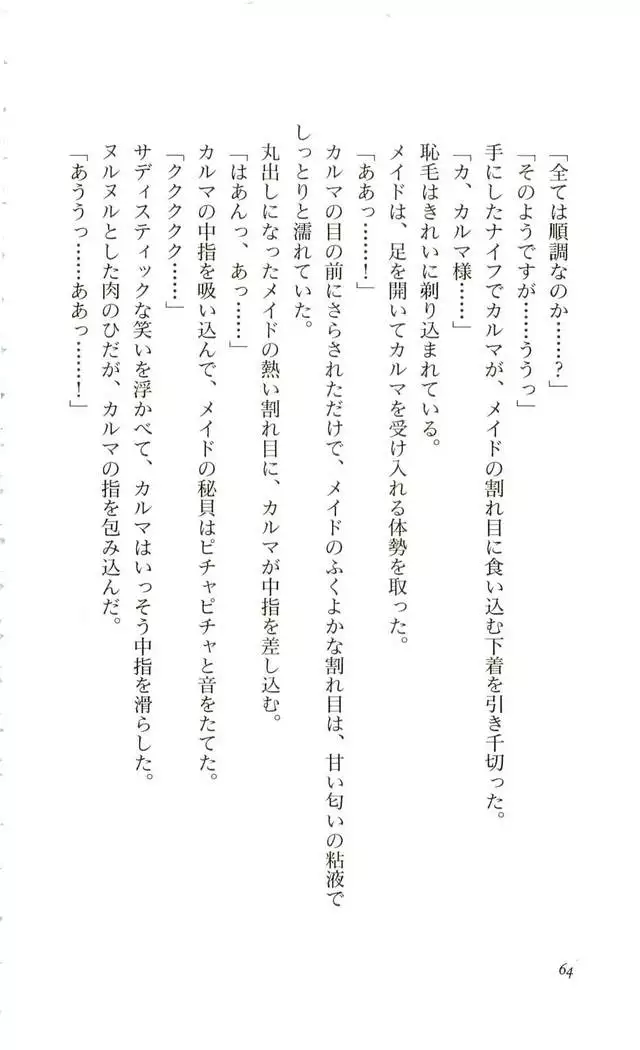 「全ては順調なのか……？」
「そのようですが……ううっ」
手にしたナイフでカルマが、メイドの割れ目に食い込む下着を引き千切った。
「カ、カルマ様……」
恥毛はきれいに剃り込まれている。
メイドは、足を開いてカルマを受け入れる体勢を取った。
「ああっ……！」
カルマの目の前にさらされただけで、メイドのふくよかな割れ目は、甘い匂いの粘液で
しっとりと濡れていた。
丸出しになったメイドの熱い割れ目に、カルマが中指を差し込む。
「はあんっ、あっ……」
カルマの中指を吸い込んで、メイドの秘貝はピチャピチャと音をたてた。
「クククク……」
サディスティックな笑いを浮かべて、カルマはいっそう中指を滑らした。
ヌルヌルとした肉のひだが、カルマの指を包み込んだ。
「あううっ……ああっ……！」
64